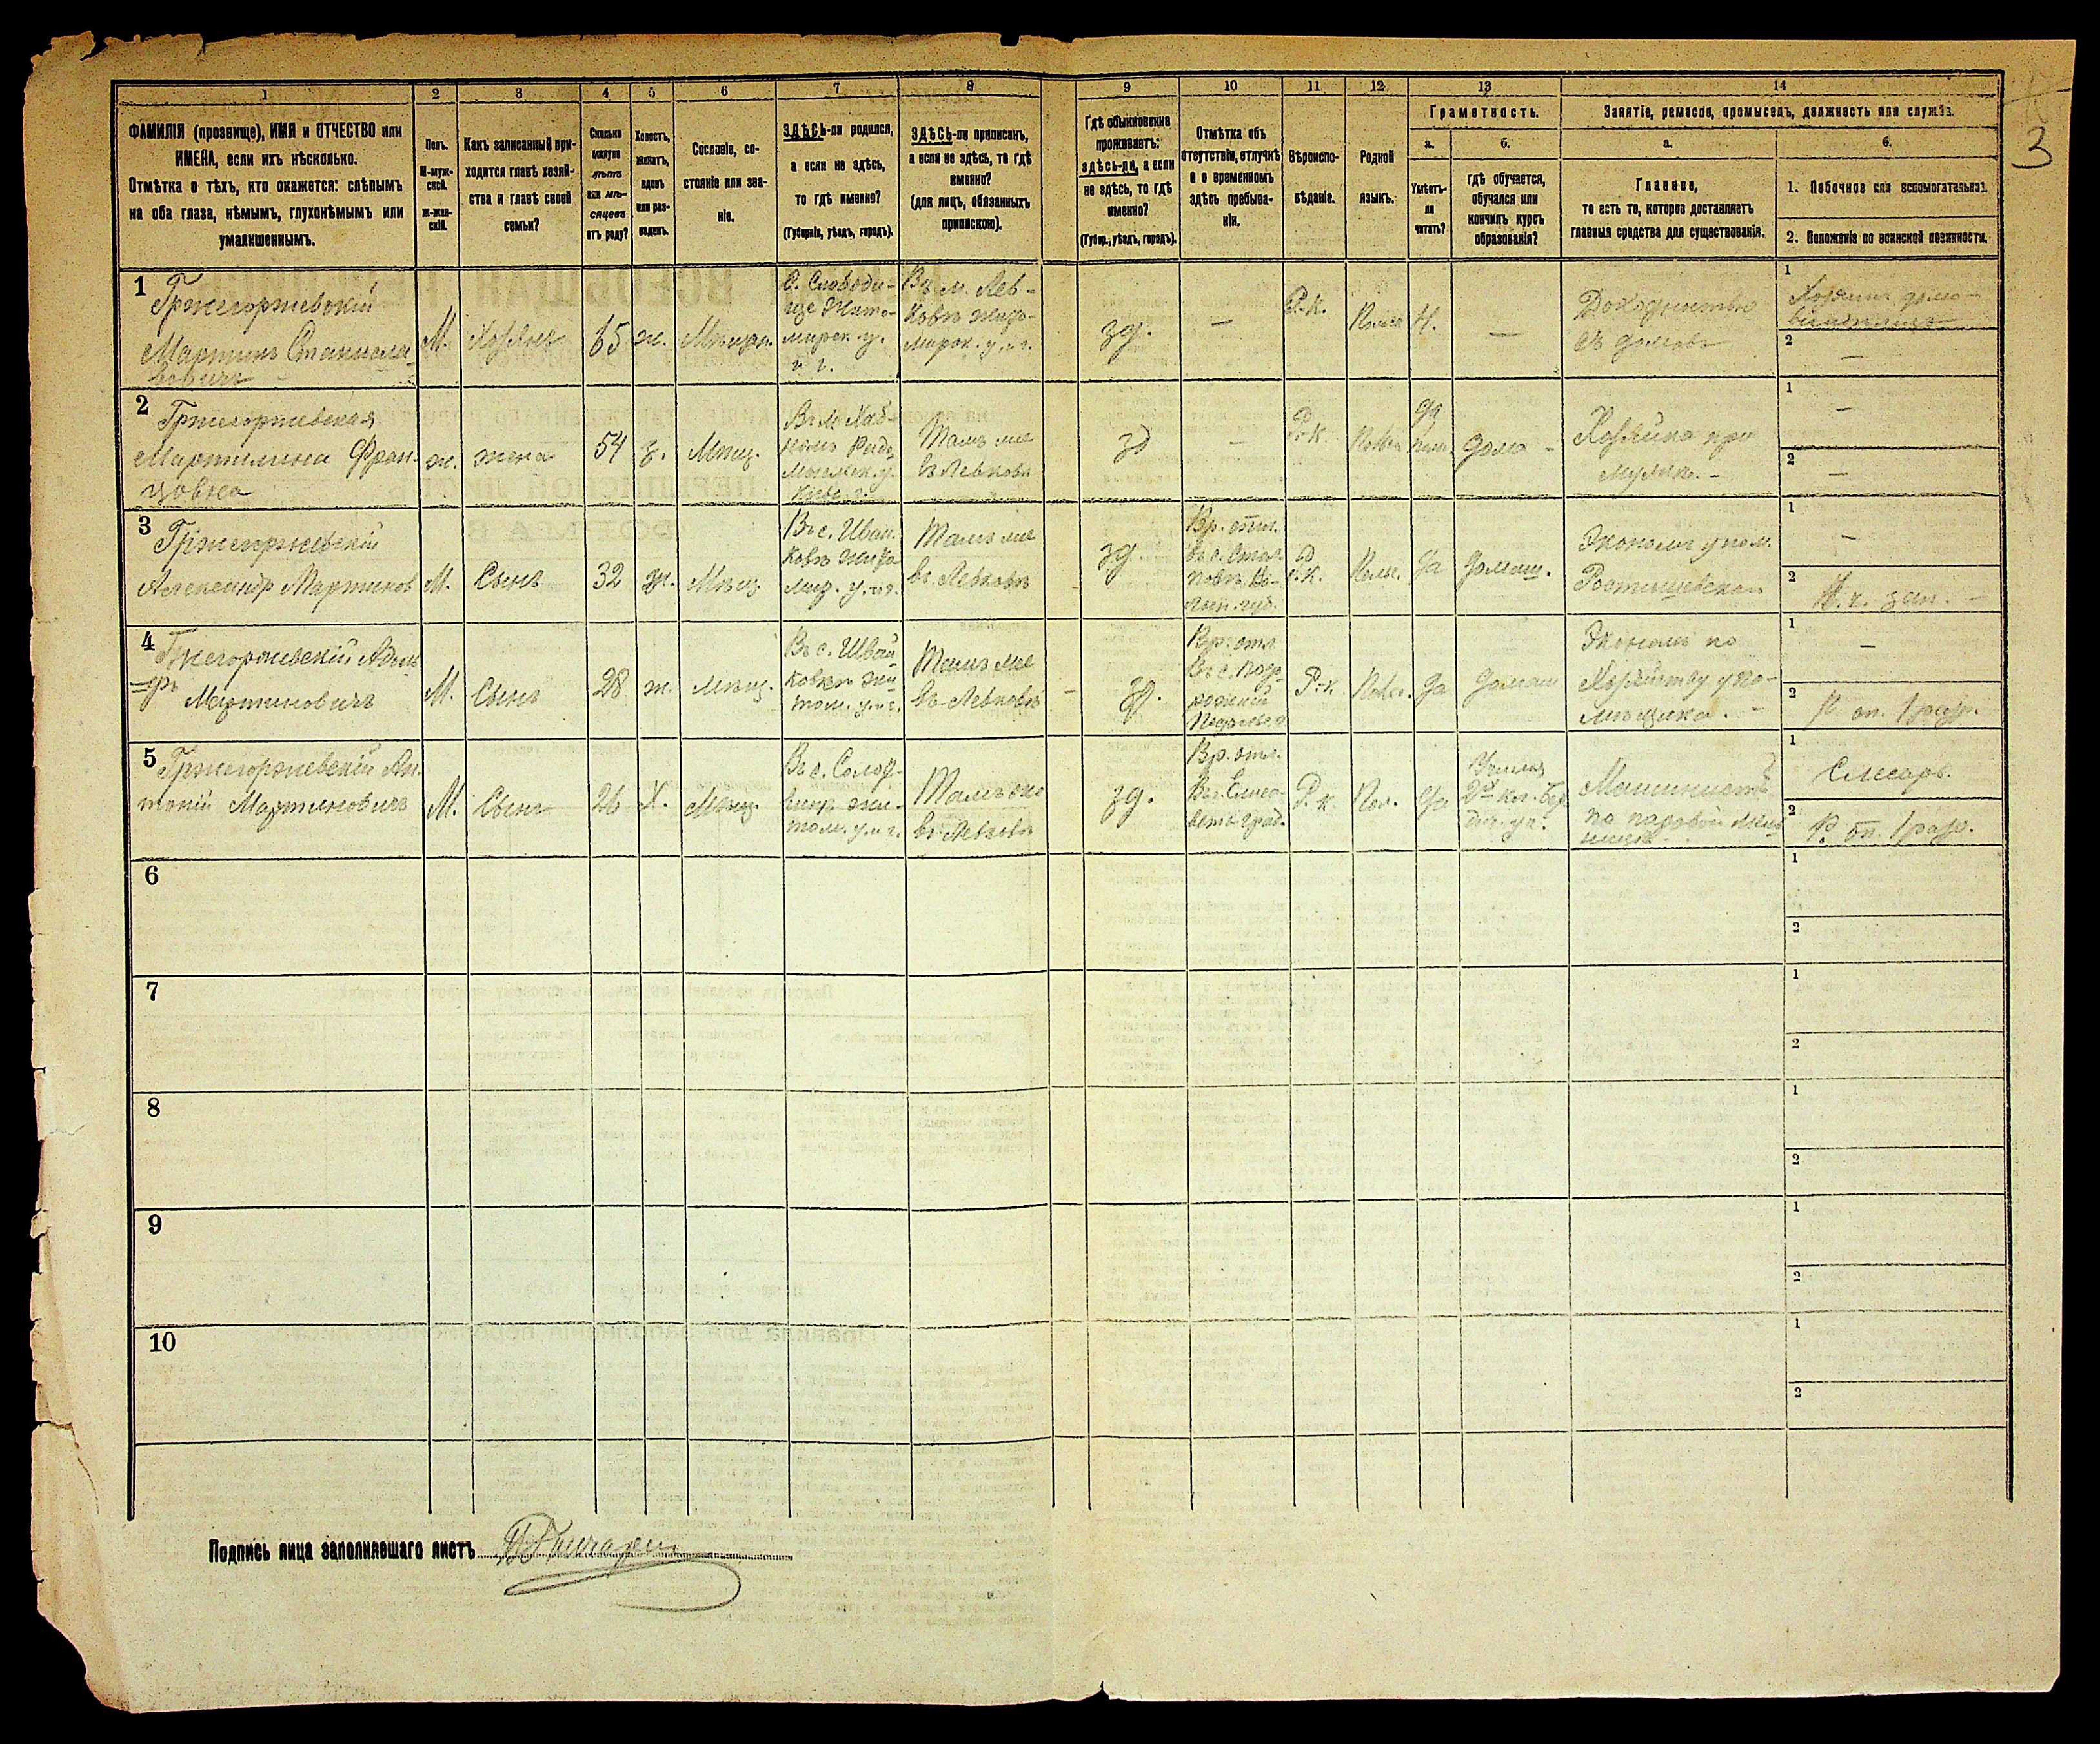 1 2 3 4 5 6 7 8 9 10 11 12 13 14
ФАМИЛІЯ (прозвище), ИМЯ и ОТЧЕСТВО или
ИМЕНА, если ихъ нѣсколько.
Отмѣтка о тѣхъ, кто окажется: слѣпымъ
на оба глаза, нѣмымъ, глухонѣмымъ или
умалишеннымъ.
Полъ.
М-муж-
ской.
Ж-жен-
скій.
Какъ записанный при-
ходится главѣ хозяй-
ства и главѣ своей
семьи?
Сколько
минуло
лѣтъ
или мѣ-
сяцевъ
отъ роду?
Холостъ,
женатъ,
вдовъ
или раз-
веденъ.
Сословіе, со-
стояніе или зва-
ніе.
ЗДѢСЬ-ли родился,
а если не здѣсь,
то гдѣ именно?
(Губернія, уѣздъ, городъ).
ЗДѢСЬ-ли приписанъ,
а если не здѣсь, то гдѣ
именно?
(для лицъ, обязанныхъ
припискою).
Гдѣ обыкновенно
проживаетъ:
здѣсь-ли, а если
не здѣсь, то гдѣ
именно?
(Губер., уѣздъ, городъ).
Отмѣтка объ
отсутствіи, отлучкѣ
и о временномъ
здѣсь пребыва-
ніи.
Вѣроиспо-
вѣданіе.
Родной
языкъ.
Грамотность.
а.
Умѣетъ-
ли
читать?
б.
гдѣ обучается,
обучался или
кончилъ курсъ
образованія?
Занятіе, ремесло, промыселъ, должность или служба.
а.
Главное,
то есть то, которое доставляетъ
главныя средства для существованія.
б.
1. Побочное или вспомогательное.
2. Положеніе по воинской повинности.
3
1
Гржегоржевскій
Мартинъ Станисла-
вовичъ
М.
Хозяинъ
65
ж.
Мѣщан.
С. Слободи-
ще Жито-
мирск. у.
и г.
Въ м. Лев-
ковѣ Жито-
мирск. у. и г.
зд.
—
Р.-к.
Н.
—
Доходностью
съ домовъ
1
Хозяинъ домо-
2
—
2
Гржегоржевская
Мартина Фран-
цовна
ж.
жена
54
з.
Мѣщ.
Тамъ же
въ Левковѣ
зд
—
Р.-к.
да
дома -
Хозяйка при
мужѣ. -
1
—
2
—
3
Гржегоржевскій
Александр Мартинов
М.
Сынъ
32
ж.
Мѣщ.
Въ с. Иван-
ковѣ Жито-
мир. у. и г.
Тамъ же
въ Левковѣ
зд.
Вр. отл.
Р.-к.
Польс.
да
домаш.
Экономъ у пом.
1
—
2
4
Гжегоржевскій Адоль-
фъ
Мартиновичъ
М.
Сынъ
28
ж.
мѣщ.
Въ с. Ивай
ковкѣ Жи-
том. у. и г.
Тамъ же
въ Левковѣ
зд.
Вр. отл.
Р.-к.
да
домаш
Экономъ по
Хозяйству у по-
мѣщика. -
1
—
2
1 разр.
5
Гржегоржевскій Ан-
тоній Мартиновичъ
М.
Сынъ
26
Х.
Мѣщ.
Тамъ же
въ Левковѣ
зд.
Вр. отл.
Въ г. Елиса-
ветъ-град.
Р. к.
Пол.
да
Машинистъ
по паровой
1
Слесарь.
2
1 разр.
6
1
2
7
1
2
8
1
2
9
1
2
10
1
2
Подпись лица заполнявшаго листъ